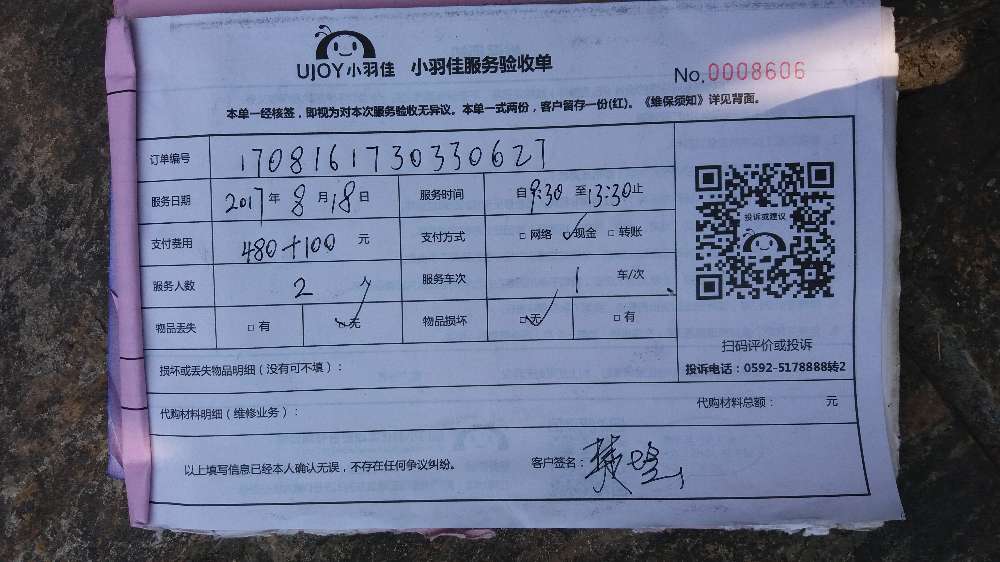 UJOY小羽佳 小羽佳服务验收单
No.0008606
本单一经核签，即视为对本次服务验收无异议。本单一式两份，客户留存一份(红)。《维保须知》详见背面。
订单编号 170816173033062​7
服务日期 2017年8月18日 服务时间 自9:30至13:30止
投诉或建议
支付费用 480+100 元 支付方式 □网络 ☑现金 □转账
服务人数 2 人 服务车次 1 车/次
物品丢失 □有 ☑无 物品损坏 ☑无 □有
扫码评价或投诉
投诉电话：0592-5178888转2
损坏或丢失物品明细（没有可不填）：
代购材料明细（维修业务）： 代购材料总额： 元
以上填写信息已经本人确认无误，不存在任何争议纠纷。 客户签名：